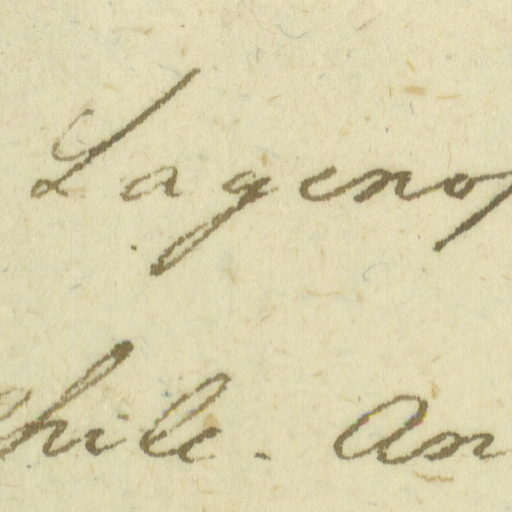 Lageno
hile. An